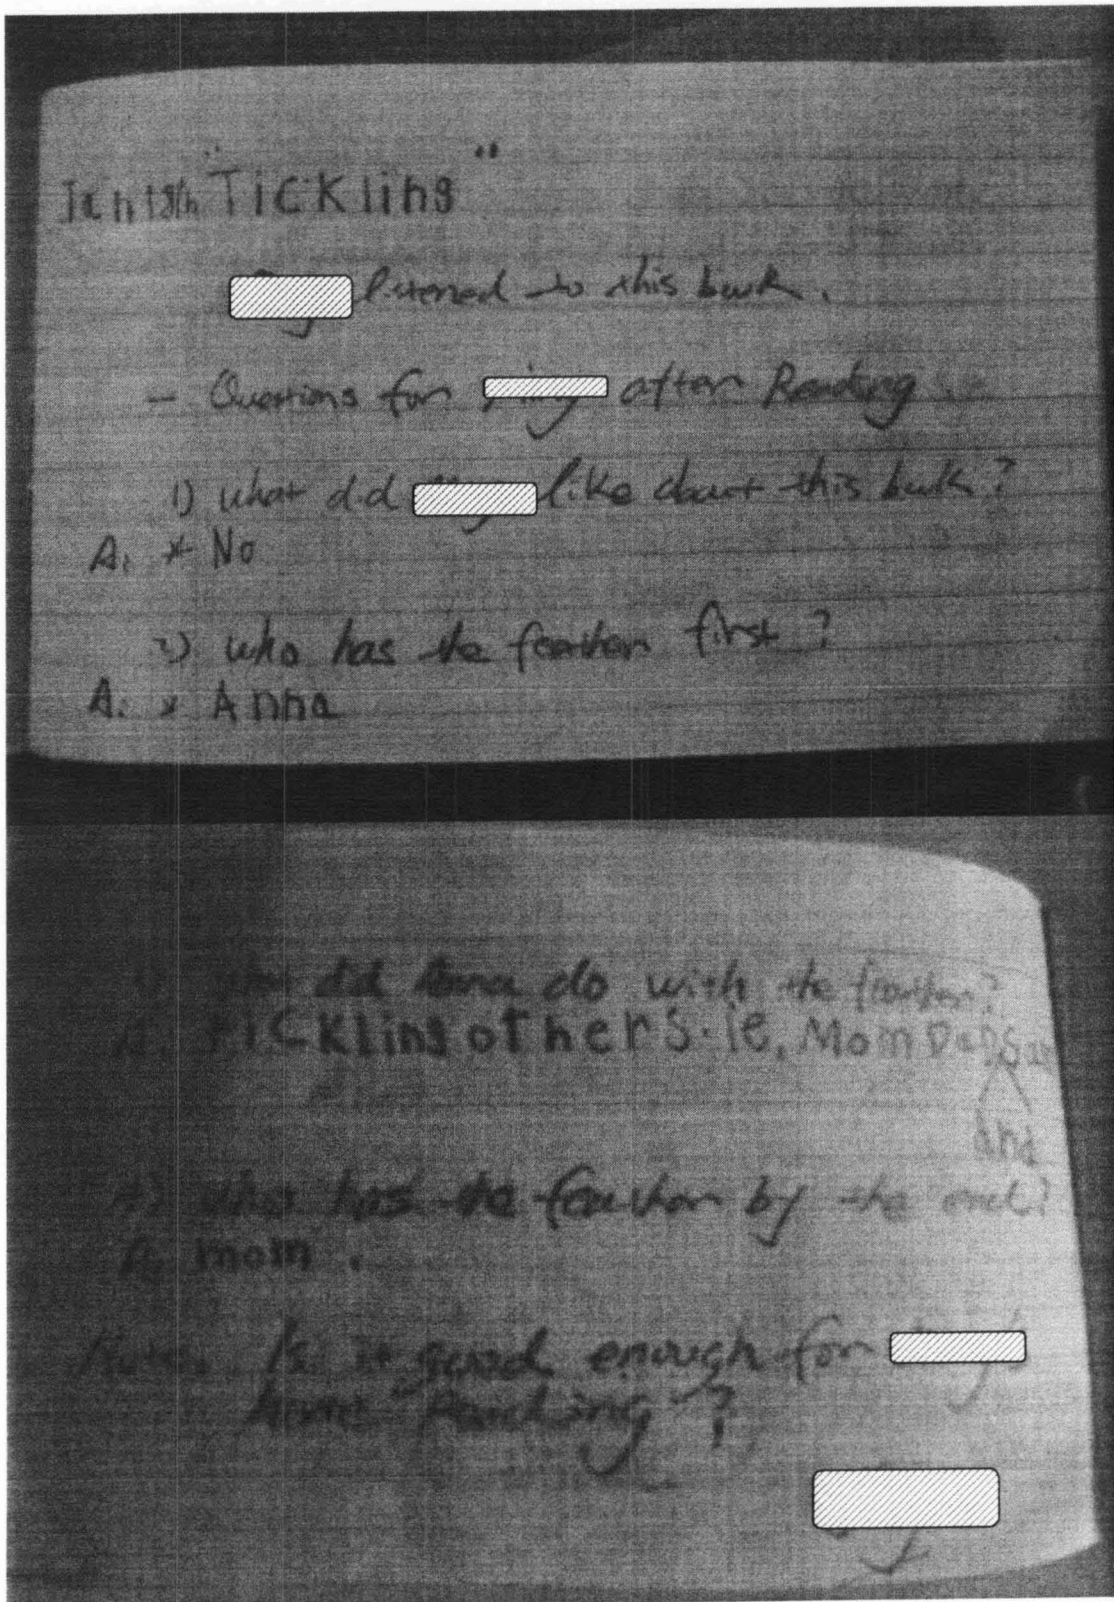 Jan 18th "TICKling"
listened to this book.
- Questions for after Reading
1) what did like about this book?
A. * No
2) who has the feather first?
A. * Anna
did Anna do with the feather?
A. TICKling others. ie, Mom Dad,
And
4) who has the feather by the end?
A. mom.
Is it good enough for
home "Reading"?